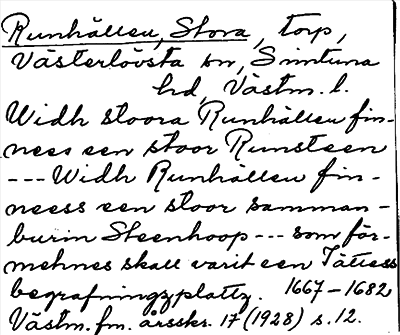 Runhällen, Stora, torp,
Västerlövsta sn, Simtuna
hd, Västm. l.
Widh stoora Runhällen fin-
nees een stoor Runsteen
--- Widh Runhällen fin-
neess een stoor samman-
burin Steenhoop --- som för-
mehnes skall varit een Jätless
begrafningzplattz. 1667-1682
Västm. fm. årsskr. 17 (1928) s. 12.